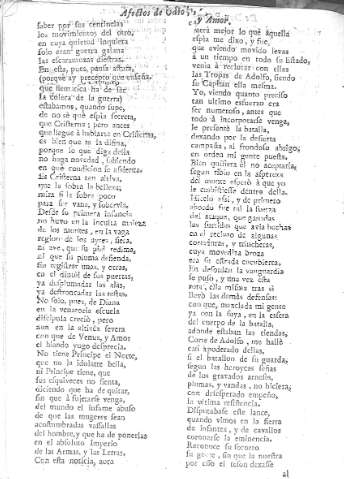 Afectos de Odio, y Amor.
saber por sus centinelas
los movimientos del otro,
en cuya quietud inquieta
solo eran guerra galana
las escaramuzas diestras.
En esta, pues, pausa astuta,
(porque ay precepto que enseña,
que flematica ha de ser
la colera de la guerra)
estabamos, quando supe,
de no sè què espia secreta,
que Cristerna; pero antes
que llegue à hablarte en Cristerna,
es bien que te la difina,
porque lo que diga della
no haga novedad, sabiendo
en què condicion se assienta.
Es Cristerna tan altiva,
que la sobra la belleza;
mira si la sobra poco
para ser vana, y sobervia.
Desde su primera infancia
no huvo en la inculta maleza
de los montes, en la vaga
region de los ayres, fiera,
ni ave, que su piè redima,
ni que su pluma defienda,
sin registrar unas, y otras,
en el dintèl de sus puertas,
ya desplumadas las alas,
ya destroncadas las testas.
No solo, pues, de Diana
en la venatoria escuela
discipula creciò, pero
aun en la altivez severa
con que de Venus, y Amor
el blando yugo desprecia.
No tiene Principe el Norte,
que no la idolatre bella,
ni Principe tiene, que
sus esquiveces no sienta,
diciendo que ha de quitar,
sin que à sujetarse venga,
del mundo el infame abuso
de que las mugeres sean
acostumbradas vassallas
del hombre, y que ha de ponerlas
en el absoluto imperio
de las Armas, y las Letras.
Con esta noticia, aora
serà mejor lo que aquella
espia me dixo, y fue,
que aviendo movido levas
à un tiempo en todo su Estado,
venia à reclutar con ellas
las Tropas de Adolfo, siendo
su Capitan ella mesma.
Yo, viendo quanto preciso
tan ultimo esfuerzo era
ser numeroso, antes que
todo à incorporarse venga,
le presentè la batalla,
dexando por la desierta
campaña, al frondoso abrigo,
en orden mi gente puesta.
Bien quisiera èl no aceptarla,
segun tibio en la aspereza
del monte esperò à que yo
le embistiesse dentro della.
Hicelo assi, y de primero
abordo fue tal la fuerza
del ataque, que ganadas
las surtidas que avia hechas
en el recinto de algunas
cortaduras, y trincheras,
cuya movediza broza
era su estrada encubierta,
En desorden la vanguardia
se puso, y una vez esta
rota, ella misma tras sì
llevò las demàs defensas:
con que, mezclada mi gente
ya con la suya, en la esfera
del cuerpo de la batalla,
donde estaban las tiendas,
Corte de Adolfo, me hallè
casi apoderado dellas,
si el batallon de su guarda,
segun las heroyces señas
de los gravados arneses,
plumas, y vandas, no hiciera,
con desesperado empeño,
la ultima resistencia.
Disputabase este lance,
quando vimos en la sierra
de infantes, y de cavallos
coronarse la eminencia.
Reconoce su socorro
su gente, sin que la nuestra
por esso el teson dexasse
al